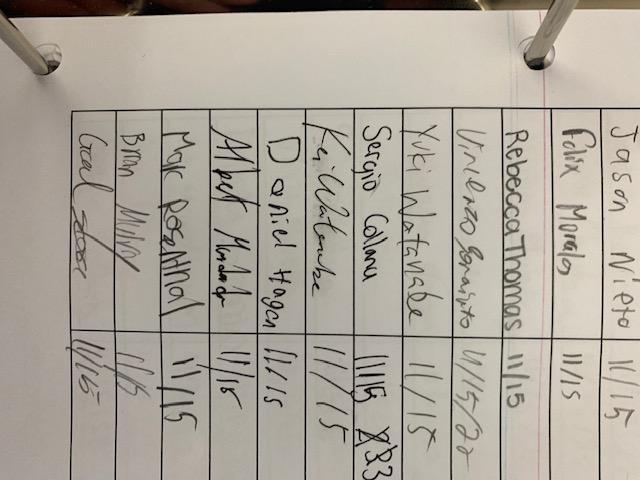 Jason Nieto 11/15
Felix Morales 11/15
Rebecca Thomas 11/15
Vincenzo 11/15/22
Yuki Watanabe 11/15
Sergio 11/15
Kei Watanabe 11/15
Daniel Hagen 11/15
Albert 11/15
Marc Rosenthal 11/15
Brian 11/15
11/15